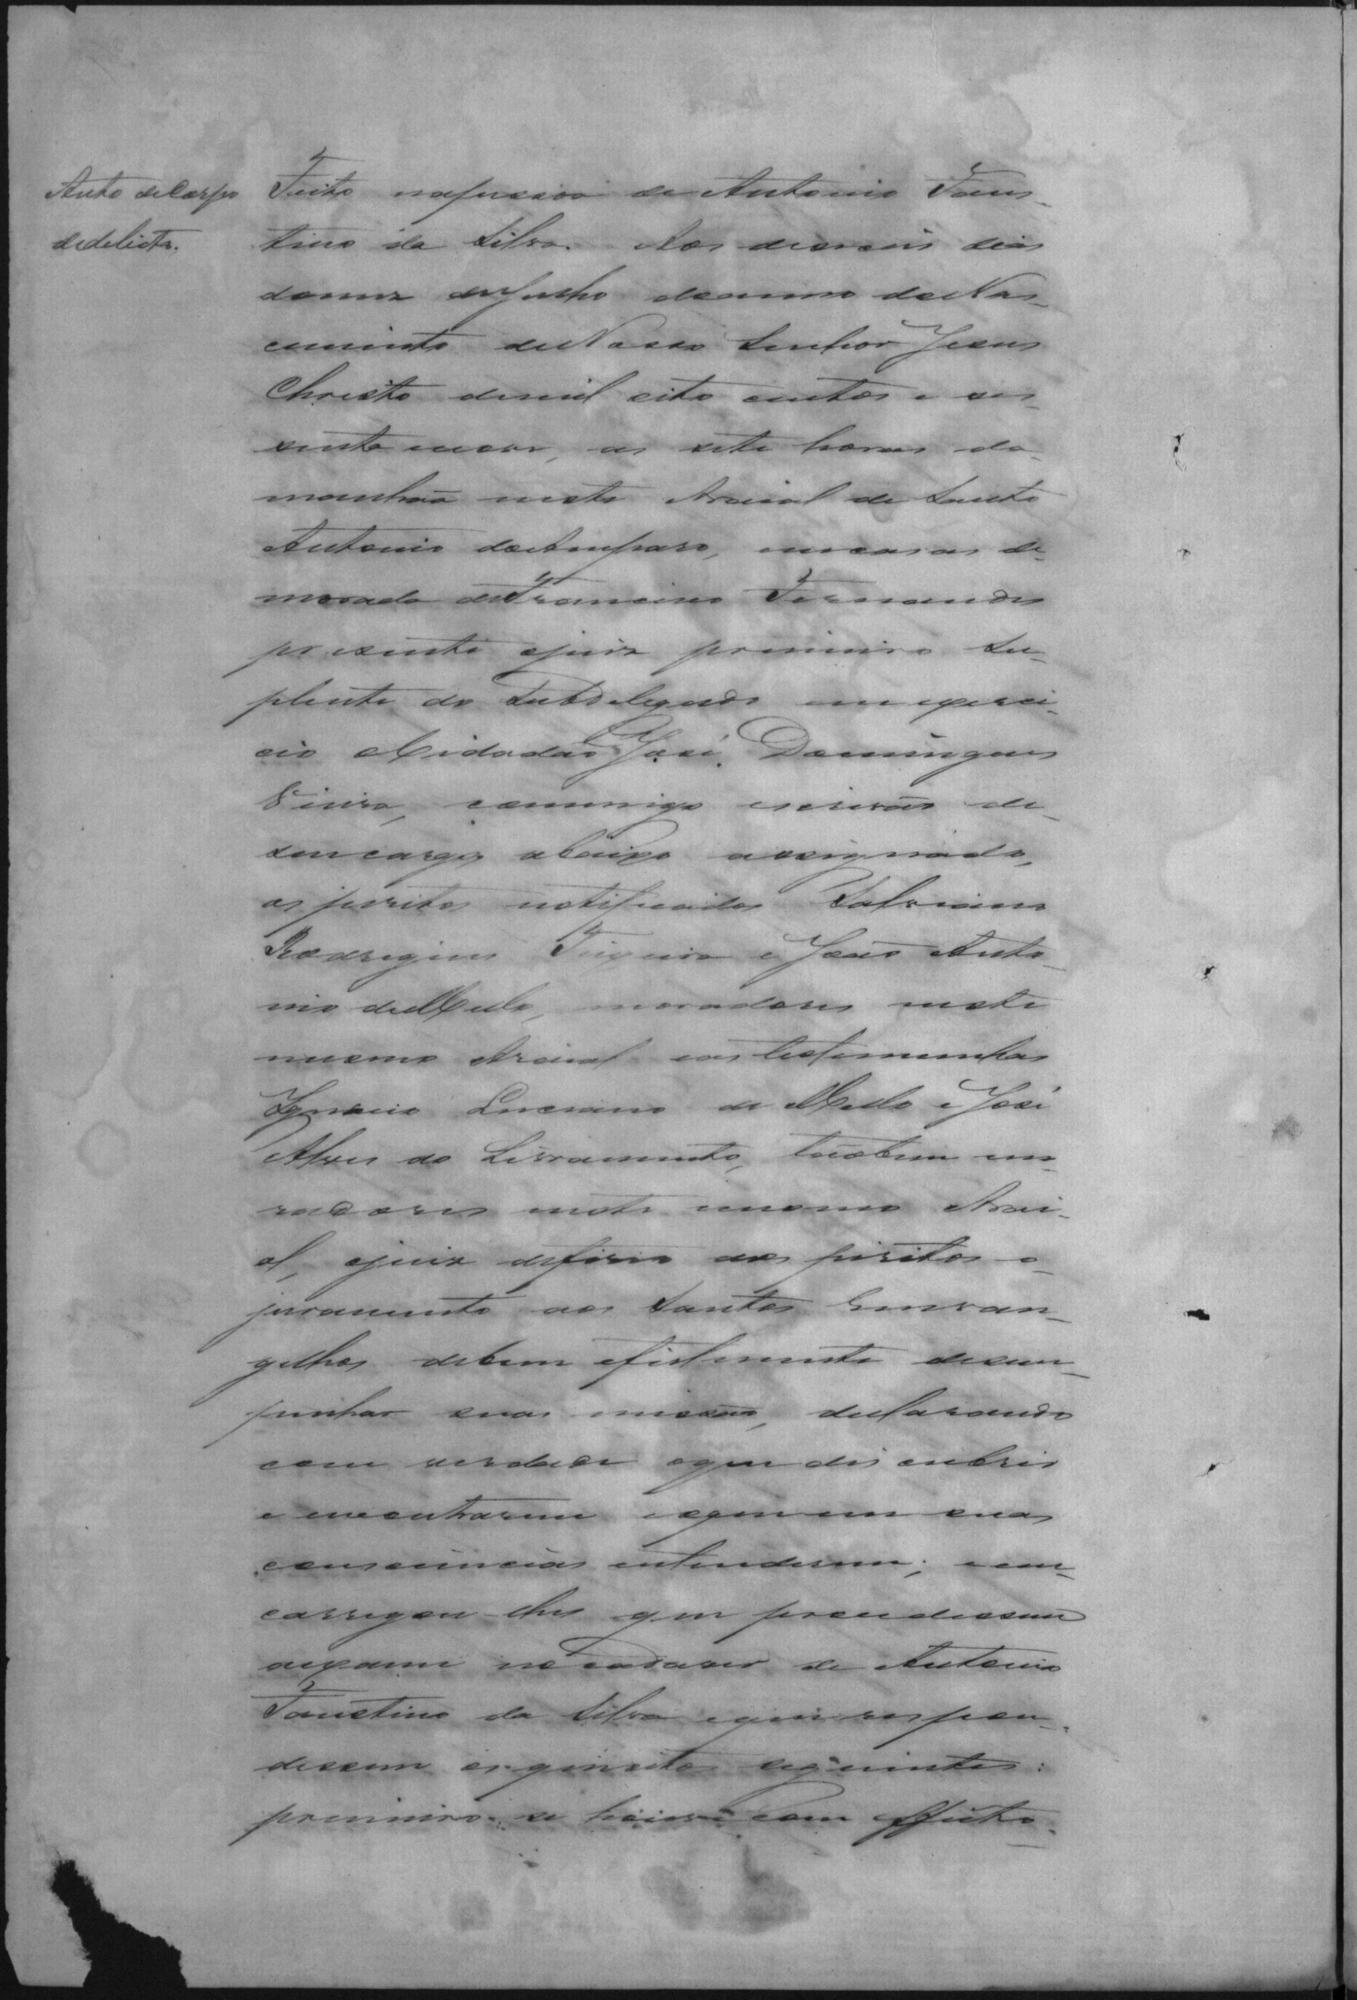 Auto de Corpo
de delicto.
Feito na pessoa de Antonio Faus-
tino da Silva. Aos dezeseis dias
do mez de Junho do anno do Nas-
cimento de Nosso Senhor Jesus
Christo de mil oito centos e ses-
senta e nove, as sete horas da
manhaã neste Arraial de Santo
Antonio do Amparo, em casas de
morada de Francisco Fernandes
presente o juiz primeiro Su-
plente do Subdelegado em exerci-
cio o Cidadão José Domingues
Vieira, commigo escrivão de
seu cargo abaixo assignado,
os peritos notificados
Rodrigues e João Anto-
nio de Mello, moradores neste
mesmo Arraial e as testemunhas
Ignacio Luciano de Mello e José
Alves do Livramento, tãobem mo-
radores neste mesmo Arrai-
al, o juiz deferio aos peritos o
juramento aos Santos Envan-
gelhos de bem e fielmente desem-
penhar suas missão, declarando
com verdade o que
e encontrarem e o que em suas
consciencias entenderem; e en-
carregou-lhes que procedessem
a exame no cadaver de Antonio
Faustino da Silva e que respon-
dessem os quisitos seguintes:
primeiro: se houve com effeito